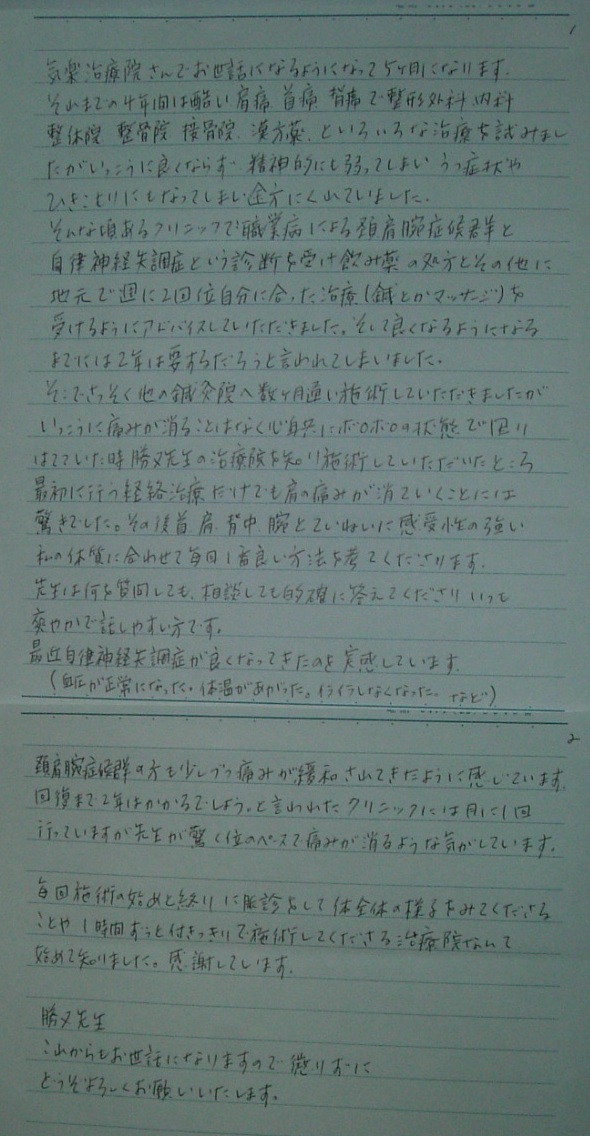 1
気楽治療院さんでお世話になるようになって5ヶ月になります。
それまでの4年間は酷い肩痛、首痛、背痛で整形外科、内科
整体院、整骨院、接骨院、漢方薬、といろいろな治療を試みまし
たがいっこうに良くならず 精神的にも弱ってしまい うつ症状や
ひきこもりにもなってしまい途方にくれていました。
そんな頃あるクリニックで職業病による頚肩腕症候群と
自律神経失調症という診断を受け飲み薬の処方とその他に
地元で週に2回位自分に合った治療(鍼とかマッサージ)を
受けるようにアドバイスしていただきました。そして良くなるようになる
までには2年は要するだろうと言われてしまいました。
そこでさっそく他の鍼灸院へ数ヶ月通い施術していただきましたが
いっこうに痛みが消えることはなく心身共にボロボロの状態で困り
はてていた時勝又先生の治療院を知り施術していただいたところ
最初に行う経絡治療だけでも肩の痛みが消えていくことには
驚きでした。その後首、肩、背中、腕とていねいに感受性の強い
私の体質に合わせて毎回1番良い方法を考えてくださります。
先生は何を質問しても、相談しても的確に答えてくださり いつも
爽やかで話しやすい方です。
最近自律神経失調症が良くなってきたのを実感しています。
(血圧が正常になった。体温があがった。イライラしなくなった。など)
2
頚肩腕症候群の方も少しづつ痛みが緩和されてきたように感じています。
回復まで2年はかかるでしょう。と言われたクリニックには月に1回
行っていますが先生が驚く位のペースで痛みが消えるような気がしています。
毎回施術の始めと終りに脈診をして体全体の様子をみてくださる
ことや1時間ずっと付きっきりで施術してくださる治療院なんて
始めて知りました。感謝しています。
勝又先生
これからもお世話になりますので懲りずに
どうぞよろしくお願いいたします。